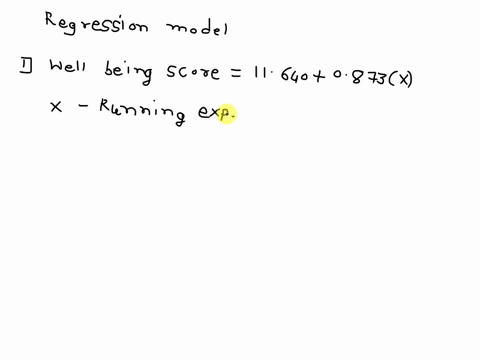 Regression model
1] Well being score = 11.640 + 0.873(x)
x - Running exp.